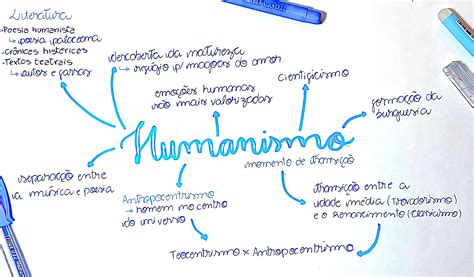 Literatura
Poesia humanista
↳ poesia palaceana
Crônicas históricas
Textos teatrais
↳ autos e farsas
descoberta da natureza
→ refúgio p/ mágoas do amor
cientificismo
emoções humanas
são mais valorizadas
formação da
burguesia
Humanismo
momento de transição
separação entre
a música e poesia
Antropocentrismo
→ homem no centro
do universo
transição entre a
idade média (Trovadorismo)
e o Renascimento (Classicismo)
Teocentrismo x Antropocentrismo